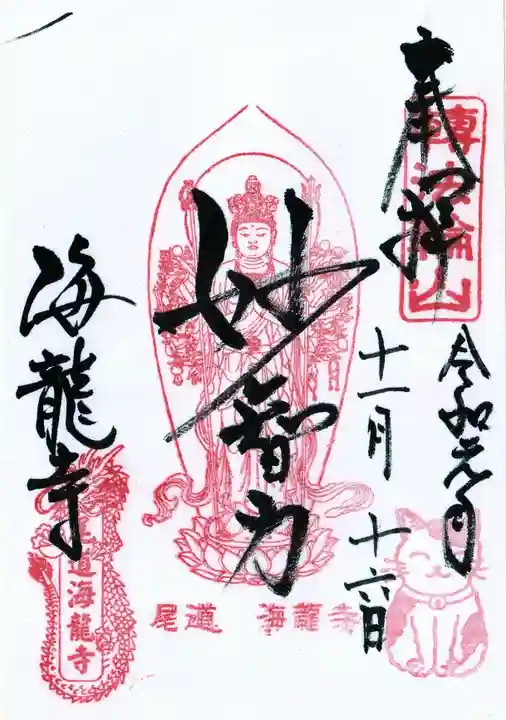 奉拝
轉法輪山
令和元年
十一月十六日
妙智力
尾道 海龍寺
海龍寺
尾道海龍寺